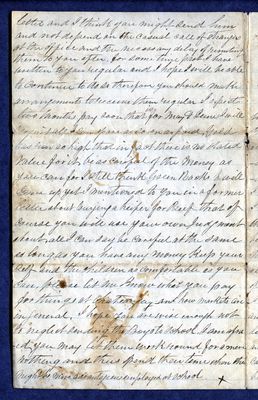 letter and I think you might send him
and not depend on the casual call of strangers
at the office and the necessary delay of remitting
them to you often, for some time past I have
written to you regular and I hope I will be able
to continue to do so therefore you should make
arrangements to receive them regular I expect
two months pay soon that for May & June I will
has run so high that in fact there is no stated
value for it be as careful of the money as
you can for I still think Green Backs will
come up yet I mentioned to you in a former
letter about buying a heifer for Beef that of
course you will use your own Judgment
about all I can say be careful at the same
as long as you have any money keep your
self and the children as comfortable as you
can, please let me know what you pay
for things at and how markets are
in general, I hope you are wise enough not
to neglect sending the Boys to School I am afra
id you may let them work round for some
nothing and thus spend their time when they
might be more advantageously employed at school